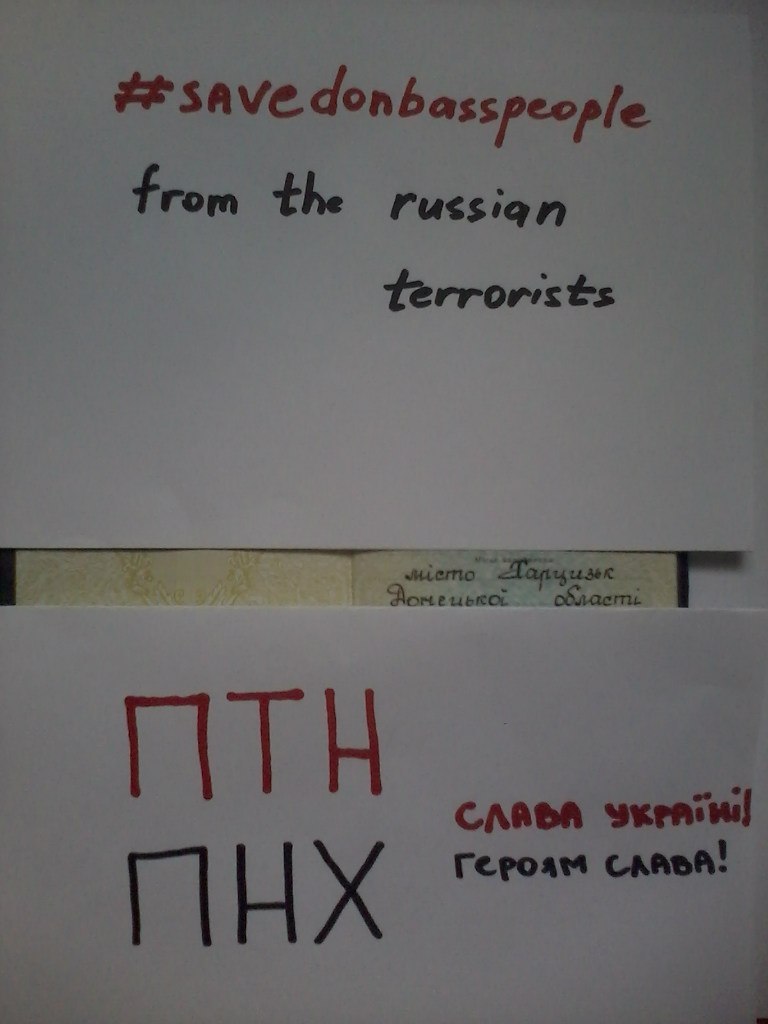 #savedonbasspeople
from the russian
terrorists
місто Харцизьк
Донецької області
ПТН
ПНХ
СЛАВА УКРАЇНІ!
ГЕРОЯМ СЛАВА!